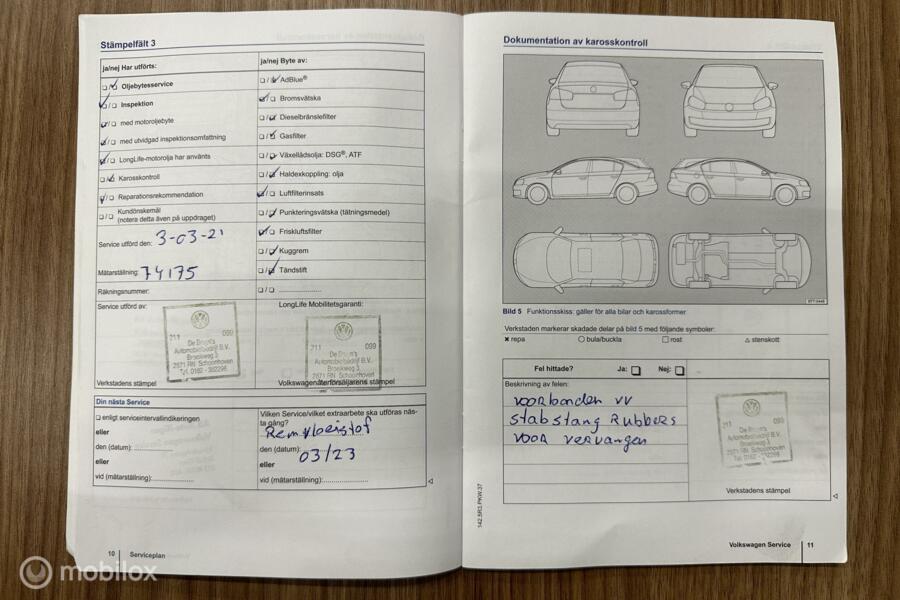 Stämpelfält 3
ja/nej Har utförts:
Oljebytesservice
Inspektion
med motoroljebyte
med utvidgad inspektionsomfattning
LongLife-motorolja har använts
Karosskontroll
Reparationsrekommendation
Kundönskemål
(notera detta även på uppdraget)
Service utförd den: 3-03-21
Mätarställning: 74175
Räkningsnummer:
Service utförd av:
211 099
De Bruijn's
Automobielbedrijf B.V.
Broeikweg 3
2871 RN Schoonhoven
Tel. 0182 - 382298
Verkstadens stämpel
ja/nej Byte av:
AdBlue®
Bromsvätska
Dieselbränslefilter
Gasfilter
Växellådsolja: DSG®, ATF
Haldexkoppling: olja
Luftfilterinsats
Punkteringsvätska (tätningsmedel)
Friskluftsfilter
Kuggrem
Tändstift
LongLife Mobilitetsgaranti:
211 099
De Bruijn's
Automobielbedrijf B.V.
Broeikweg 3
2871 RN Schoonhoven
Tel. 0182 - 382298
Volkswagenåterförsäljarens stämpel
Din nästa Service
enligt serviceintervallindikeringen
eller
den (datum):
eller
vid (mätarställning):
Vilken Service/vilket extraarbete ska utföras näs-
ta gång?
Remvloeistof
den (datum): 03/23
eller
vid (mätarställning):
10 Serviceplan
Dokumentation av karosskontroll
BTT-0448
Bild 5 Funktionsskiss: gäller för alla bilar och karossformer
Verkstaden markerar skadade delar på bild 5 med följande symboler:
repa bula/buckla rost stenskott
Fel hittade? Ja: Nej:
Beskrivning av felen:
voorbanden VV
stabstang Rubbers
voor vervangen
211 099
De Bruijn's
Automobielbedrijf B.V.
Broeikweg 3
2871 RN Schoonhoven
Tel. 0182 - 382298
Verkstadens stämpel
142.5R3.PKW.37
Volkswagen Service 11
mobilox